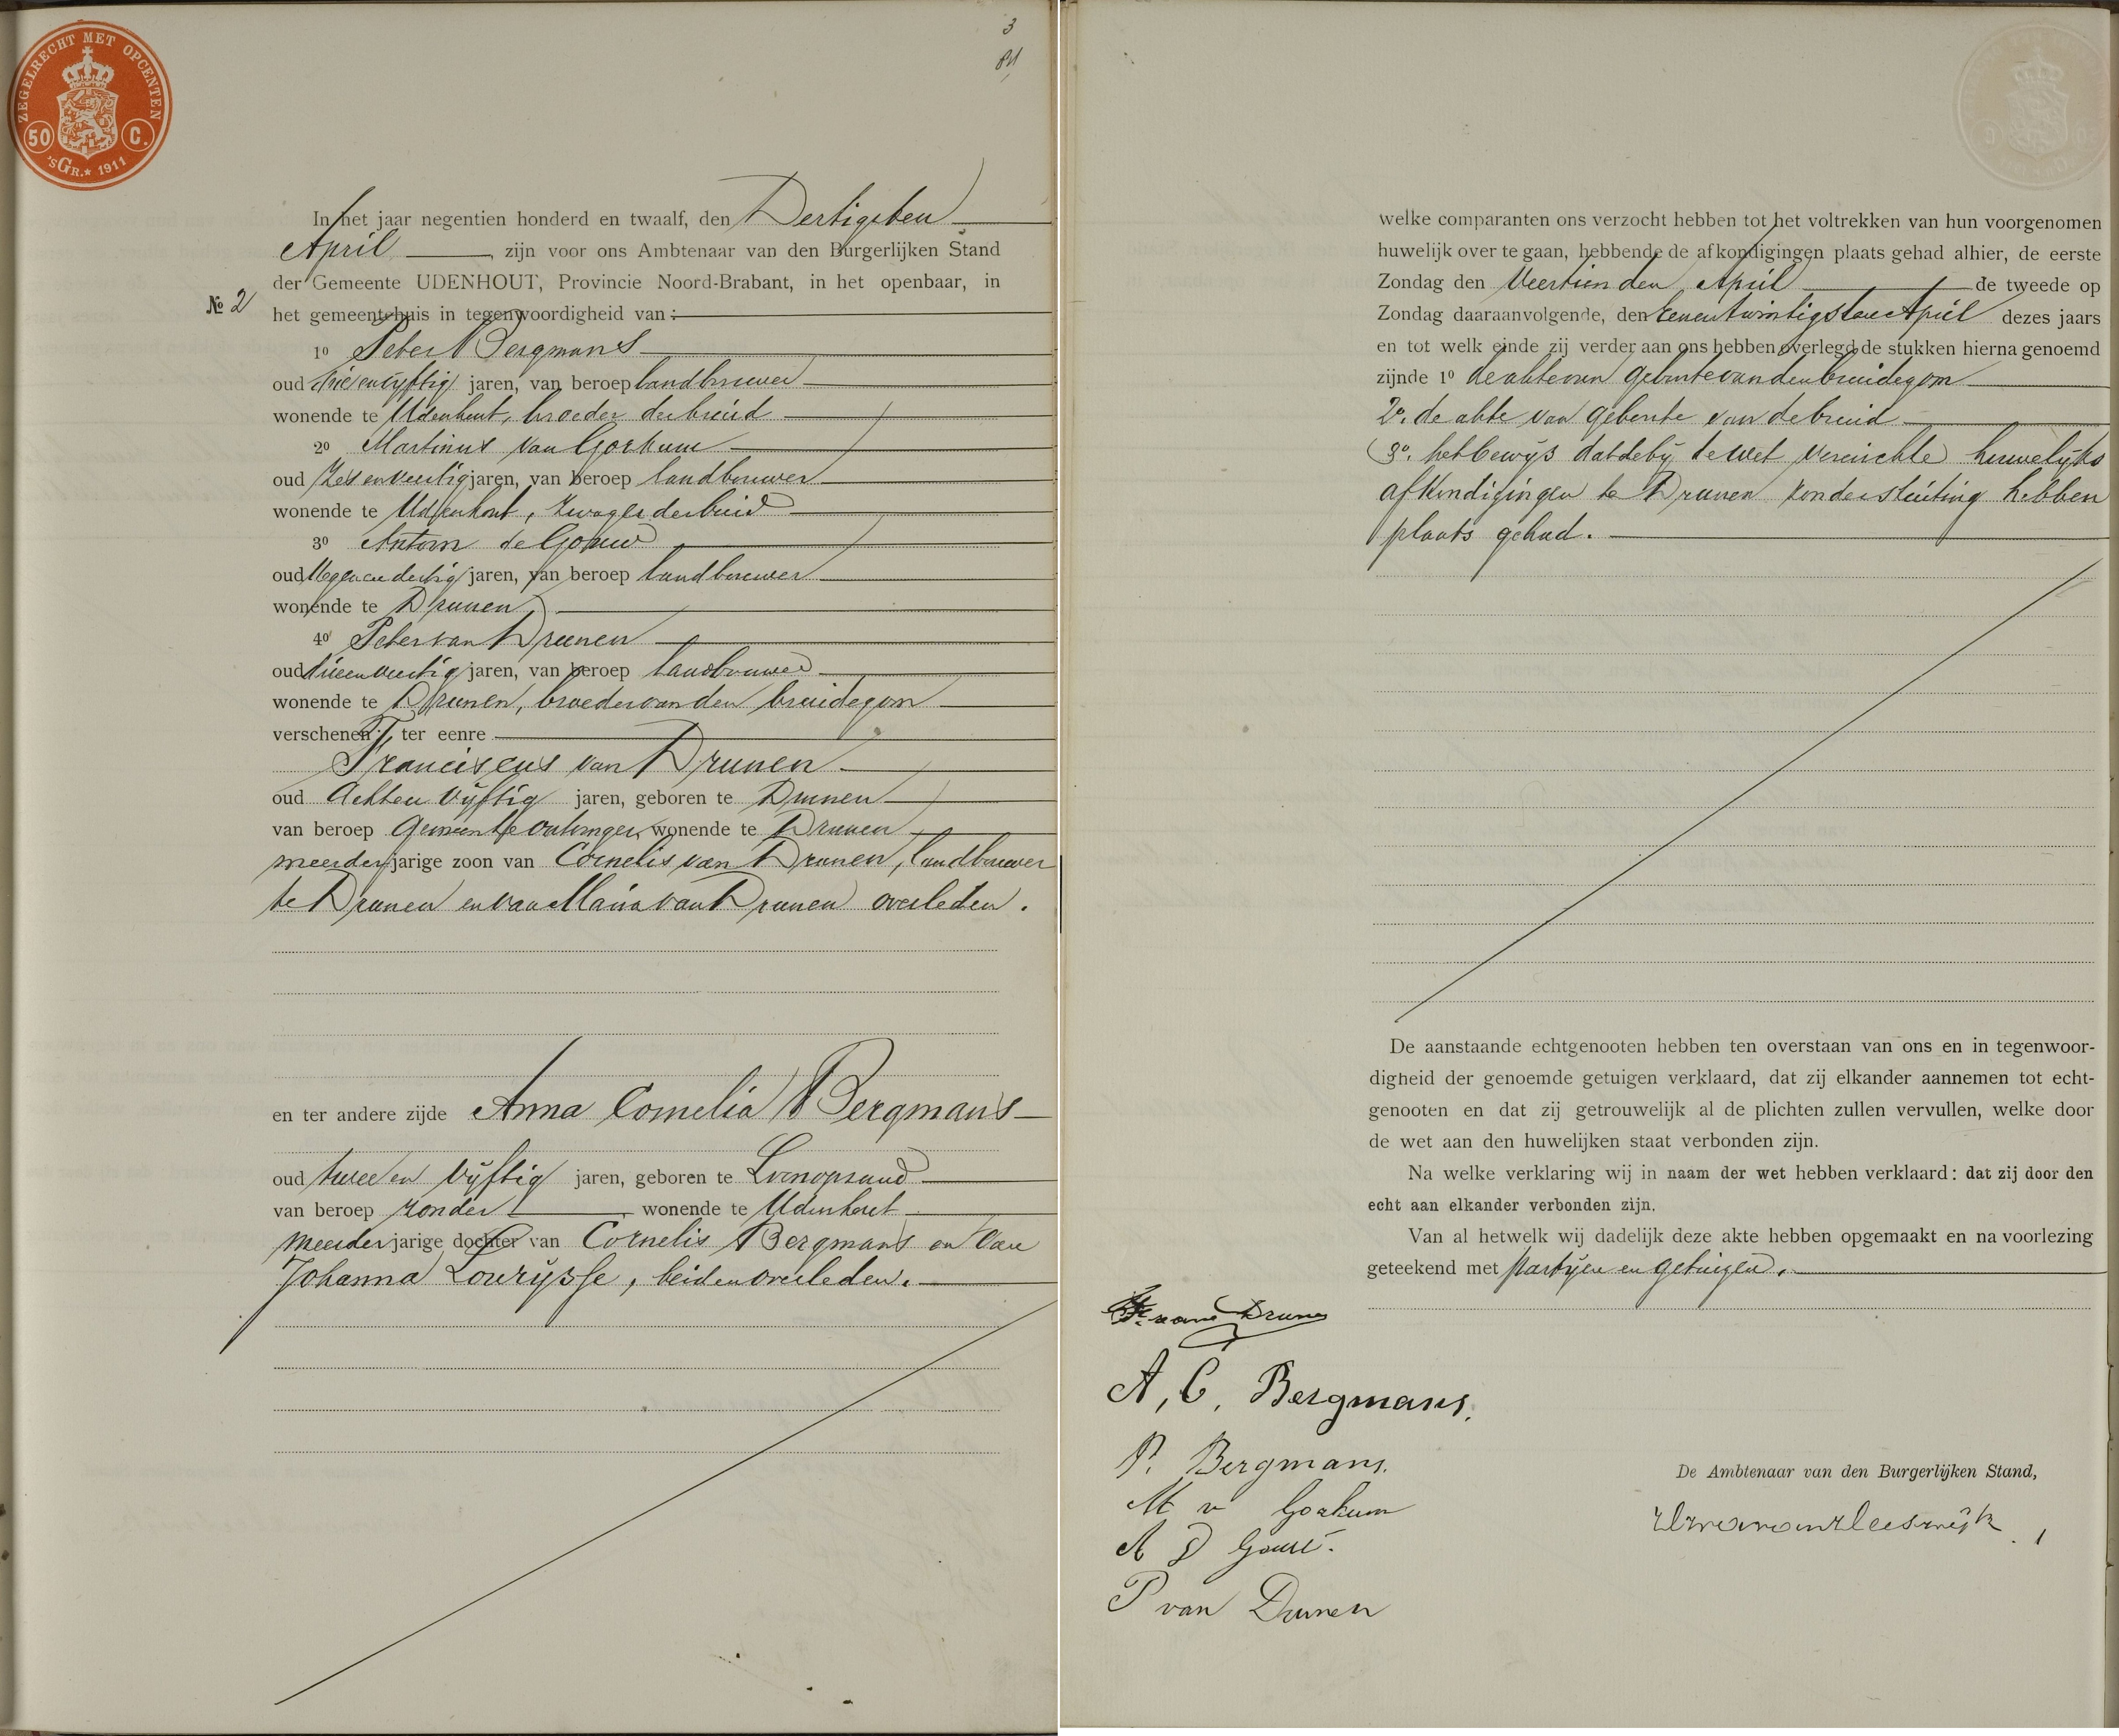 3
ZEGELRECHT MET OPCENTEN
50 C.
'sGR.★ 1911
In het jaar negentien honderd en twaalf, den Dertigsten
April zijn voor ons Ambtenaar van den Burgerlijken Stand
der Gemeente UDENHOUT, Provincie Noord-Brabant, in het openbaar, in
№ 2 het gemeentehuis in tegenwoordigheid van :
1º Peter Bergmans
oud drieenvyftig jaren, van beroep landbouwer
wonende te Udenhout, broeder der bruid
2º Martinus van Gorkum
oud Zesenveertig jaren, van beroep landbouwer
wonende te Udenhout, zwager der bruid
3º Antoon de Gouw
oud Negenendertig jaren, van beroep landbouwer
wonende te Drunen
4º Peter van Drunen
oud drieenveertig jaren, van beroep landbouwer
wonende te Drunen, broeder van den bruidegom
verschenen : ter eenre
Franciscus van Drunen
oud Achtenvyftig jaren, geboren te Drunen
van beroep Gemeente ontvanger, wonende te Drunen
meerderjarige zoon van Cornelis van Drunen, landbouwer
te Drunen en van Maria van Drunen overleden.
en ter andere zijde Anna Cornelia Bergmans
oud twee en vyftig jaren, geboren te Loonopzand
van beroep zonder wonende te Udenhout
meerderjarige dochter van Cornelis Bergmans en van
Johanna Lourysse, beiden overleden.
welke comparanten ons verzocht hebben tot het voltrekken van hun voorgenomen
huwelijk over te gaan, hebbende de afkondigingen plaats gehad alhier, de eerste
Zondag den Veertienden April de tweede op
Zondag daaraanvolgende, den Eenentwintigsten April dezes jaars
en tot welk einde zij verder aan ons hebben overlegd de stukken hierna genoemd
zijnde 1º de akte van geboorte van den bruidegom
2º. de akte van geboorte van de bruid
3º. het bewys dat de by de wet vereischte huwelyks
afkondigingen te Drunen zonder stuiting hebben
plaats gehad.
De aanstaande echtgenooten hebben ten overstaan van ons en in tegenwoor-
digheid der genoemde getuigen verklaard, dat zij elkander aannemen tot echt-
genooten en dat zij getrouwelijk al de plichten zullen vervullen, welke door
de wet aan den huwelijken staat verbonden zijn.
Na welke verklaring wij in naam der wet hebben verklaard : dat zij door den
echt aan elkander verbonden zijn.
Van al hetwelk wij dadelijk deze akte hebben opgemaakt en na voorlezing
geteekend met partyen en getuigen.
Fr. van Drunen
A, C, Bergmans.
P. Bergmans.
M v Gorkum
A D Gouw.
P van Drunen
De Ambtenaar van den Burgerlijken Stand,